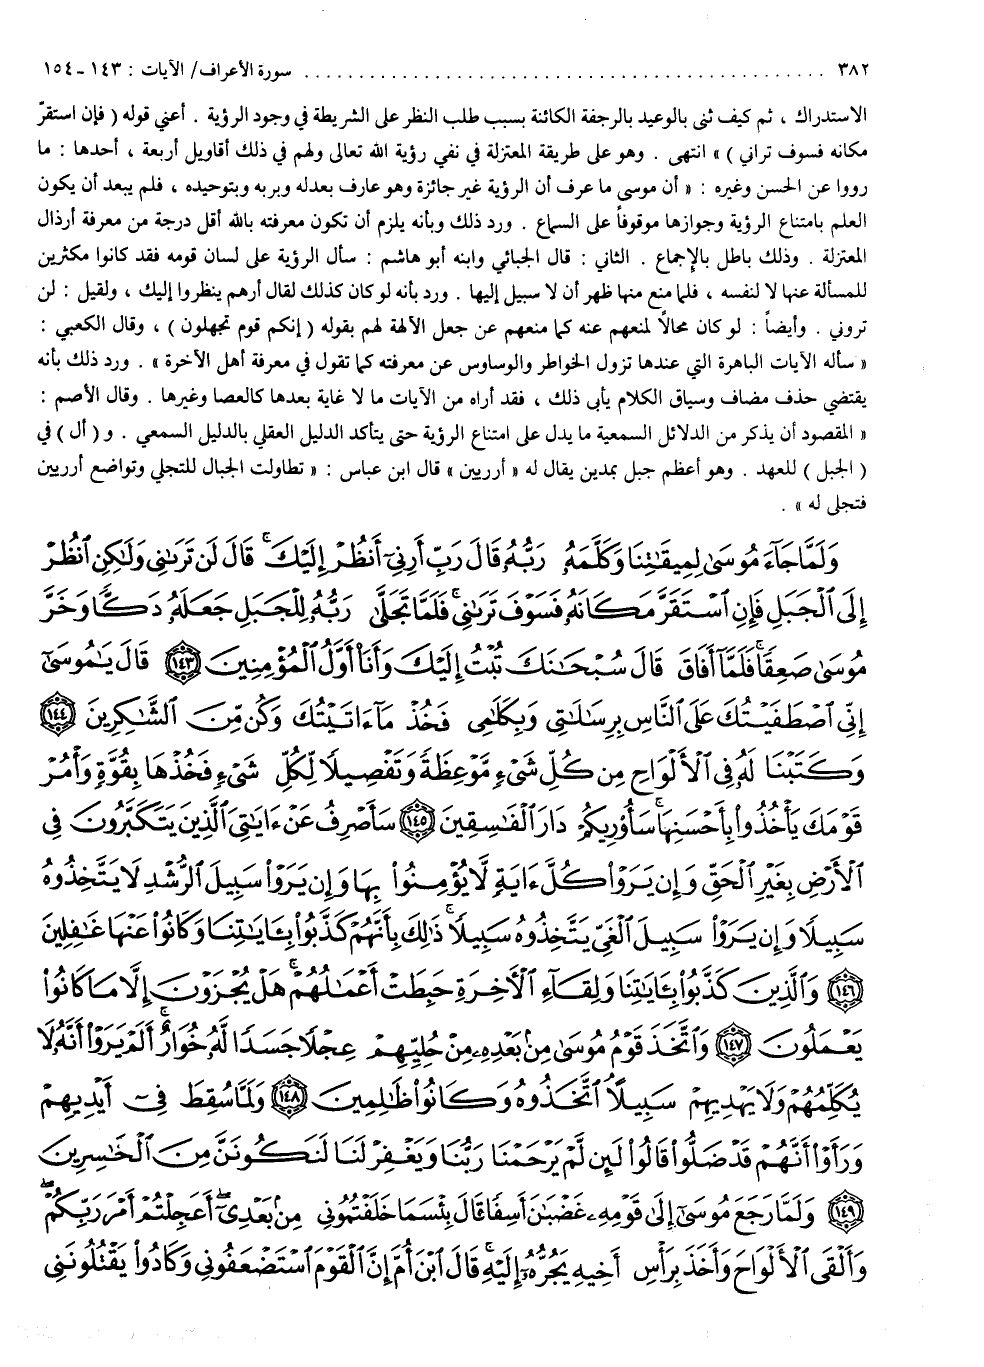 ٣٨٢ ........................ سورة الأعراف/ الآيات : ١٤٣ - ١٥٤
الاستدراك ، ثم كيف ثنى بالوعيد بالرجفة الكائنة بسبب طلب النظر على الشريطة في وجود الرؤية . أعني قوله ( فإن استقرّ
مكانه فسوف تراني ) » انتهى . وهو على طريقة المعتزلة في نفي رؤية الله تعالى ولهم في ذلك أقاويل أربعة ، أحدها : ما
رووا عن الحسن وغيره : « أن موسى ما عرف أن الرؤية غير جائزة وهو عارف بعدله وبربه وبتوحيده ، فلم يبعد أن يكون
العلم بامتناع الرؤية وجوازها موقوفاً على السماع . ورد ذلك وبأنه يلزم أن تكون معرفته بالله أقل درجة من معرفة أرذال
المعتزلة . وذلك باطل بالإجماع . الثاني : قال الجبائي وابنه أبو هاشم : سأل الرؤية على لسان قومه فقد كانوا مكثرين
للمسألة عنها لا لنفسه ، فلما منع منها ظهر أن لا سبيل إليها . ورد بأنه لو كان كذلك لقال أرهم ينظروا إليك ، ولقيل : لن
تروني . وأيضاً : لو كان محالاً لمنعهم عنه كما منعهم عن جعل الآلهة لهم بقوله ( إنكم قوم تجهلون ) ، وقال الكعبي :
« سأله الآيات الباهرة التي عندها تزول الخواطر والوساوس عن معرفته كما تقول في معرفة أهل الآخرة » . ورد ذلك بأنه
يقتضي حذف مضاف وسياق الكلام يأبى ذلك ، فقد أراه من الآيات ما لا غاية بعدها كالعصا وغيرها . وقال الأصم :
« المقصود أن يذكر من الدلائل السمعية ما يدل على امتناع الرؤية حتى يتأكد الدليل العقلي بالدليل السمعي . و ( أل ) في
( الجبل ) للعهد . وهو أعظم جبل بمدين يقال له « أرريين » قال ابن عباس : « تطاولت الجبال للتجلي وتواضع أرريين
فتجلى له » .
وَلَمَّا جَآءَ مُوسَىٰ لِمِيقَٰتِنَا وَكَلَّمَهُۥ رَبُّهُۥ قَالَ رَبِّ أَرِنِىٓ أَنظُرْ إِلَيْكَ ۚ قَالَ لَن تَرَىٰنِى وَلَٰكِنِ ٱنظُرْ
إِلَى ٱلْجَبَلِ فَإِنِ ٱسْتَقَرَّ مَكَانَهُۥ فَسَوْفَ تَرَىٰنِى ۚ فَلَمَّا تَجَلَّىٰ رَبُّهُۥ لِلْجَبَلِ جَعَلَهُۥ دَكًّا وَخَرَّ
مُوسَىٰ صَعِقًا ۚ فَلَمَّآ أَفَاقَ قَالَ سُبْحَٰنَكَ تُبْتُ إِلَيْكَ وَأَنَا۠ أَوَّلُ ٱلْمُؤْمِنِينَ ﴿١٤٣﴾ قَالَ يَٰمُوسَىٰٓ
إِنِّى ٱصْطَفَيْتُكَ عَلَى ٱلنَّاسِ بِرِسَٰلَٰتِى وَبِكَلَٰمِى فَخُذْ مَآ ءَاتَيْتُكَ وَكُن مِّنَ ٱلشَّٰكِرِينَ ﴿١٤٤﴾
وَكَتَبْنَا لَهُۥ فِى ٱلْأَلْوَاحِ مِن كُلِّ شَىْءٍ مَّوْعِظَةً وَتَفْصِيلًا لِّكُلِّ شَىْءٍ فَخُذْهَا بِقُوَّةٍ وَأْمُرْ
قَوْمَكَ يَأْخُذُوا۟ بِأَحْسَنِهَا ۚ سَأُو۟رِيكُمْ دَارَ ٱلْفَٰسِقِينَ ﴿١٤٥﴾ سَأَصْرِفُ عَنْ ءَايَٰتِىَ ٱلَّذِينَ يَتَكَبَّرُونَ فِى
ٱلْأَرْضِ بِغَيْرِ ٱلْحَقِّ وَإِن يَرَوْا۟ كُلَّ ءَايَةٍ لَّا يُؤْمِنُوا۟ بِهَا وَإِن يَرَوْا۟ سَبِيلَ ٱلرُّشْدِ لَا يَتَّخِذُوهُ
سَبِيلًا وَإِن يَرَوْا۟ سَبِيلَ ٱلْغَىِّ يَتَّخِذُوهُ سَبِيلًا ۚ ذَٰلِكَ بِأَنَّهُمْ كَذَّبُوا۟ بِـَٔايَٰتِنَا وَكَانُوا۟ عَنْهَا غَٰفِلِينَ
﴿١٤٦﴾ وَٱلَّذِينَ كَذَّبُوا۟ بِـَٔايَٰتِنَا وَلِقَآءِ ٱلْءَاخِرَةِ حَبِطَتْ أَعْمَٰلُهُمْ ۚ هَلْ يُجْزَوْنَ إِلَّا مَا كَانُوا۟
يَعْمَلُونَ ﴿١٤٧﴾ وَٱتَّخَذَ قَوْمُ مُوسَىٰ مِنۢ بَعْدِهِۦ مِنْ حُلِيِّهِمْ عِجْلًا جَسَدًا لَّهُۥ خُوَارٌ ۚ أَلَمْ يَرَوْا۟ أَنَّهُۥ لَا
يُكَلِّمُهُمْ وَلَا يَهْدِيهِمْ سَبِيلًا ۘ ٱتَّخَذُوهُ وَكَانُوا۟ ظَٰلِمِينَ ﴿١٤٨﴾ وَلَمَّا سُقِطَ فِىٓ أَيْدِيهِمْ
وَرَأَوْا۟ أَنَّهُمْ قَدْ ضَلُّوا۟ قَالُوا۟ لَئِن لَّمْ يَرْحَمْنَا رَبُّنَا وَيَغْفِرْ لَنَا لَنَكُونَنَّ مِنَ ٱلْخَٰسِرِينَ
﴿١٤٩﴾ وَلَمَّا رَجَعَ مُوسَىٰٓ إِلَىٰ قَوْمِهِۦ غَضْبَٰنَ أَسِفًا قَالَ بِئْسَمَا خَلَفْتُمُونِى مِنۢ بَعْدِىٓ ۖ أَعَجِلْتُمْ أَمْرَ رَبِّكُمْ ۖ
وَأَلْقَى ٱلْأَلْوَاحَ وَأَخَذَ بِرَأْسِ أَخِيهِ يَجُرُّهُۥٓ إِلَيْهِ ۚ قَالَ ٱبْنَ أُمَّ إِنَّ ٱلْقَوْمَ ٱسْتَضْعَفُونِى وَكَادُوا۟ يَقْتُلُونَنِى